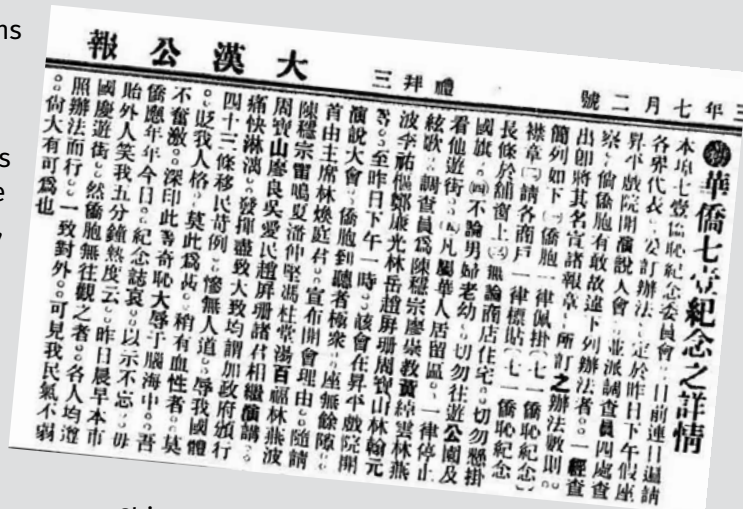 三年七月二號
禮拜三
大漢公報
華僑七壹紀念之詳情
本埠七壹僑恥紀念委員會。日前連日遍請
各界代表。妥訂辦法。定於昨日下午假座
昇平戲院開演說大會。並派調查員四處查
察。倘僑胞有敢故違下列辦法者。一經查
出卽將其名宣諸報章。所訂之辦法數則。
簡列如下㈠僑胞一律佩掛[七一僑恥紀念]
襟章㈡請各商戶一律標貼[七一僑恥紀念]
長條於舖窗上㈢無論商店住宅。切勿懸掛
國旗。㈣不論男婦老幼。切勿往遊公園及
看仙遊街。㈤凡屬華人居留區。一律停止
絃歌。調查員爲陳穩宗廖崇教黃綽雲林燕
波李祐樞鄭康光林岳趙屏珊周寶山林翰元
等。至昨日下午一時。該會在昇平戲院開
演說大會。僑胞到聽者極衆。座無餘隙。
首由主席林煥庭君。宣布開會理由。隨請
陳穩宗雷鳴夏潘仲堅馮杜堂湯百福林燕波
周寶山廖良吳愛民趙屏珊諸君相繼演講。
痛快淋漓。發揮盡致大致均謂加政府頒行
四十三條移民苛例。慘無人道。辱我國體
。貶我人格。莫此爲甚。稍有血性者。莫
不奮激。深印此等奇恥大辱于腦海中。吾
僑應年年今日。紀念誌哀。以示不忘。毋
貽外人笑我五分鐘熱度云。昨日晨早本市
國慶遊街。然僑胞無往觀之者。各人均遵
照辦法而行。一致對外。可見我民氣不弱
。尚大有可爲也